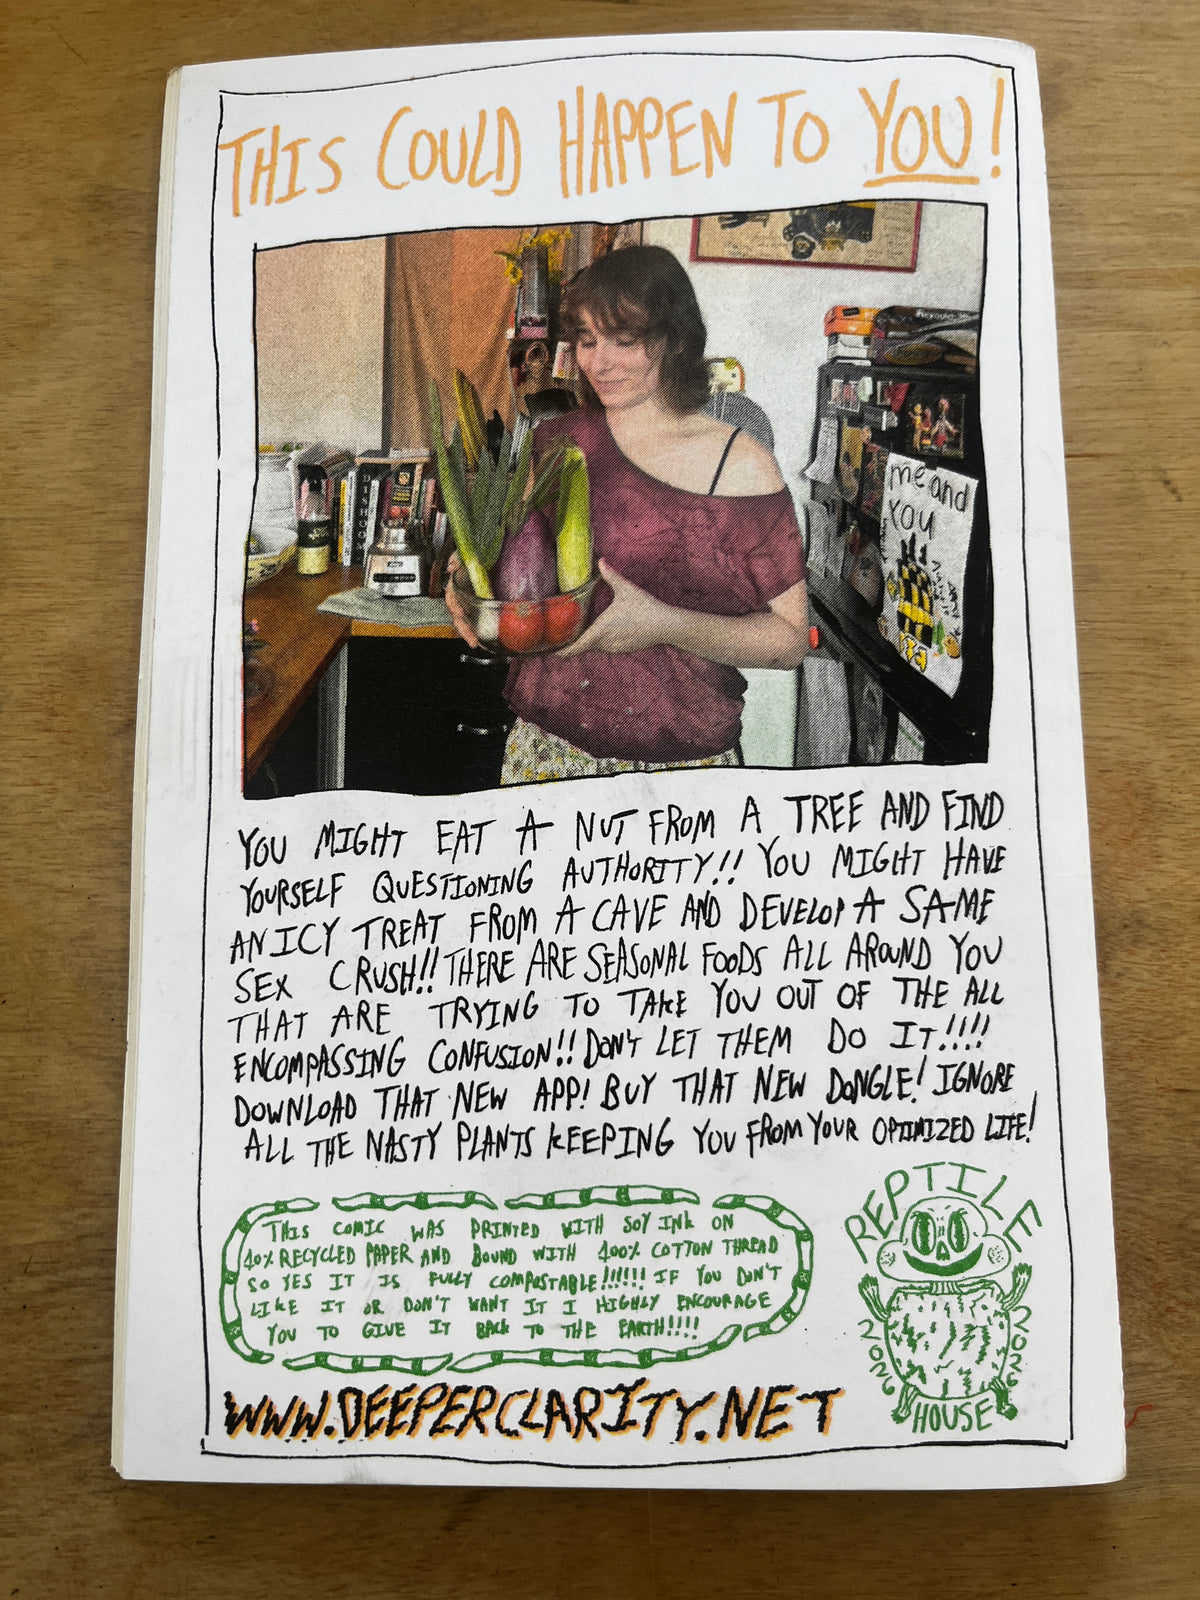 THIS COULD HAPPEN TO YOU!
DISHOOM
me and
you
YOU MIGHT EAT A NUT FROM A TREE AND FIND
YOURSELF QUESTIONING AUTHORITY!! YOU MIGHT HAVE
AN ICY TREAT FROM A CAVE AND DEVELOP A SAME
SEX CRUSH!! THERE ARE SEASONAL FOODS ALL AROUND YOU
THAT ARE TRYING TO TAKE YOU OUT OF THE ALL
ENCOMPASSING CONFUSION!! DON'T LET THEM DO IT!!!!
DOWNLOAD THAT NEW APP! BUY THAT NEW DONGLE! IGNORE
ALL THE NASTY PLANTS KEEPING YOU FROM YOUR OPTIMIZED LIFE!
THIS COMIC WAS PRINTED WITH SOY INK ON
10% RECYCLED PAPER AND BOUND WITH 100% COTTON THREAD
SO YES IT IS FULLY COMPOSTABLE!!!!!! IF YOU DON'T
LIKE IT OR DON'T WANT IT I HIGHLY ENCOURAGE
YOU TO GIVE IT BACK TO THE EARTH!!!!
REPTILE
2026
2026
HOUSE
WWW.DEEPERCLARITY.NET